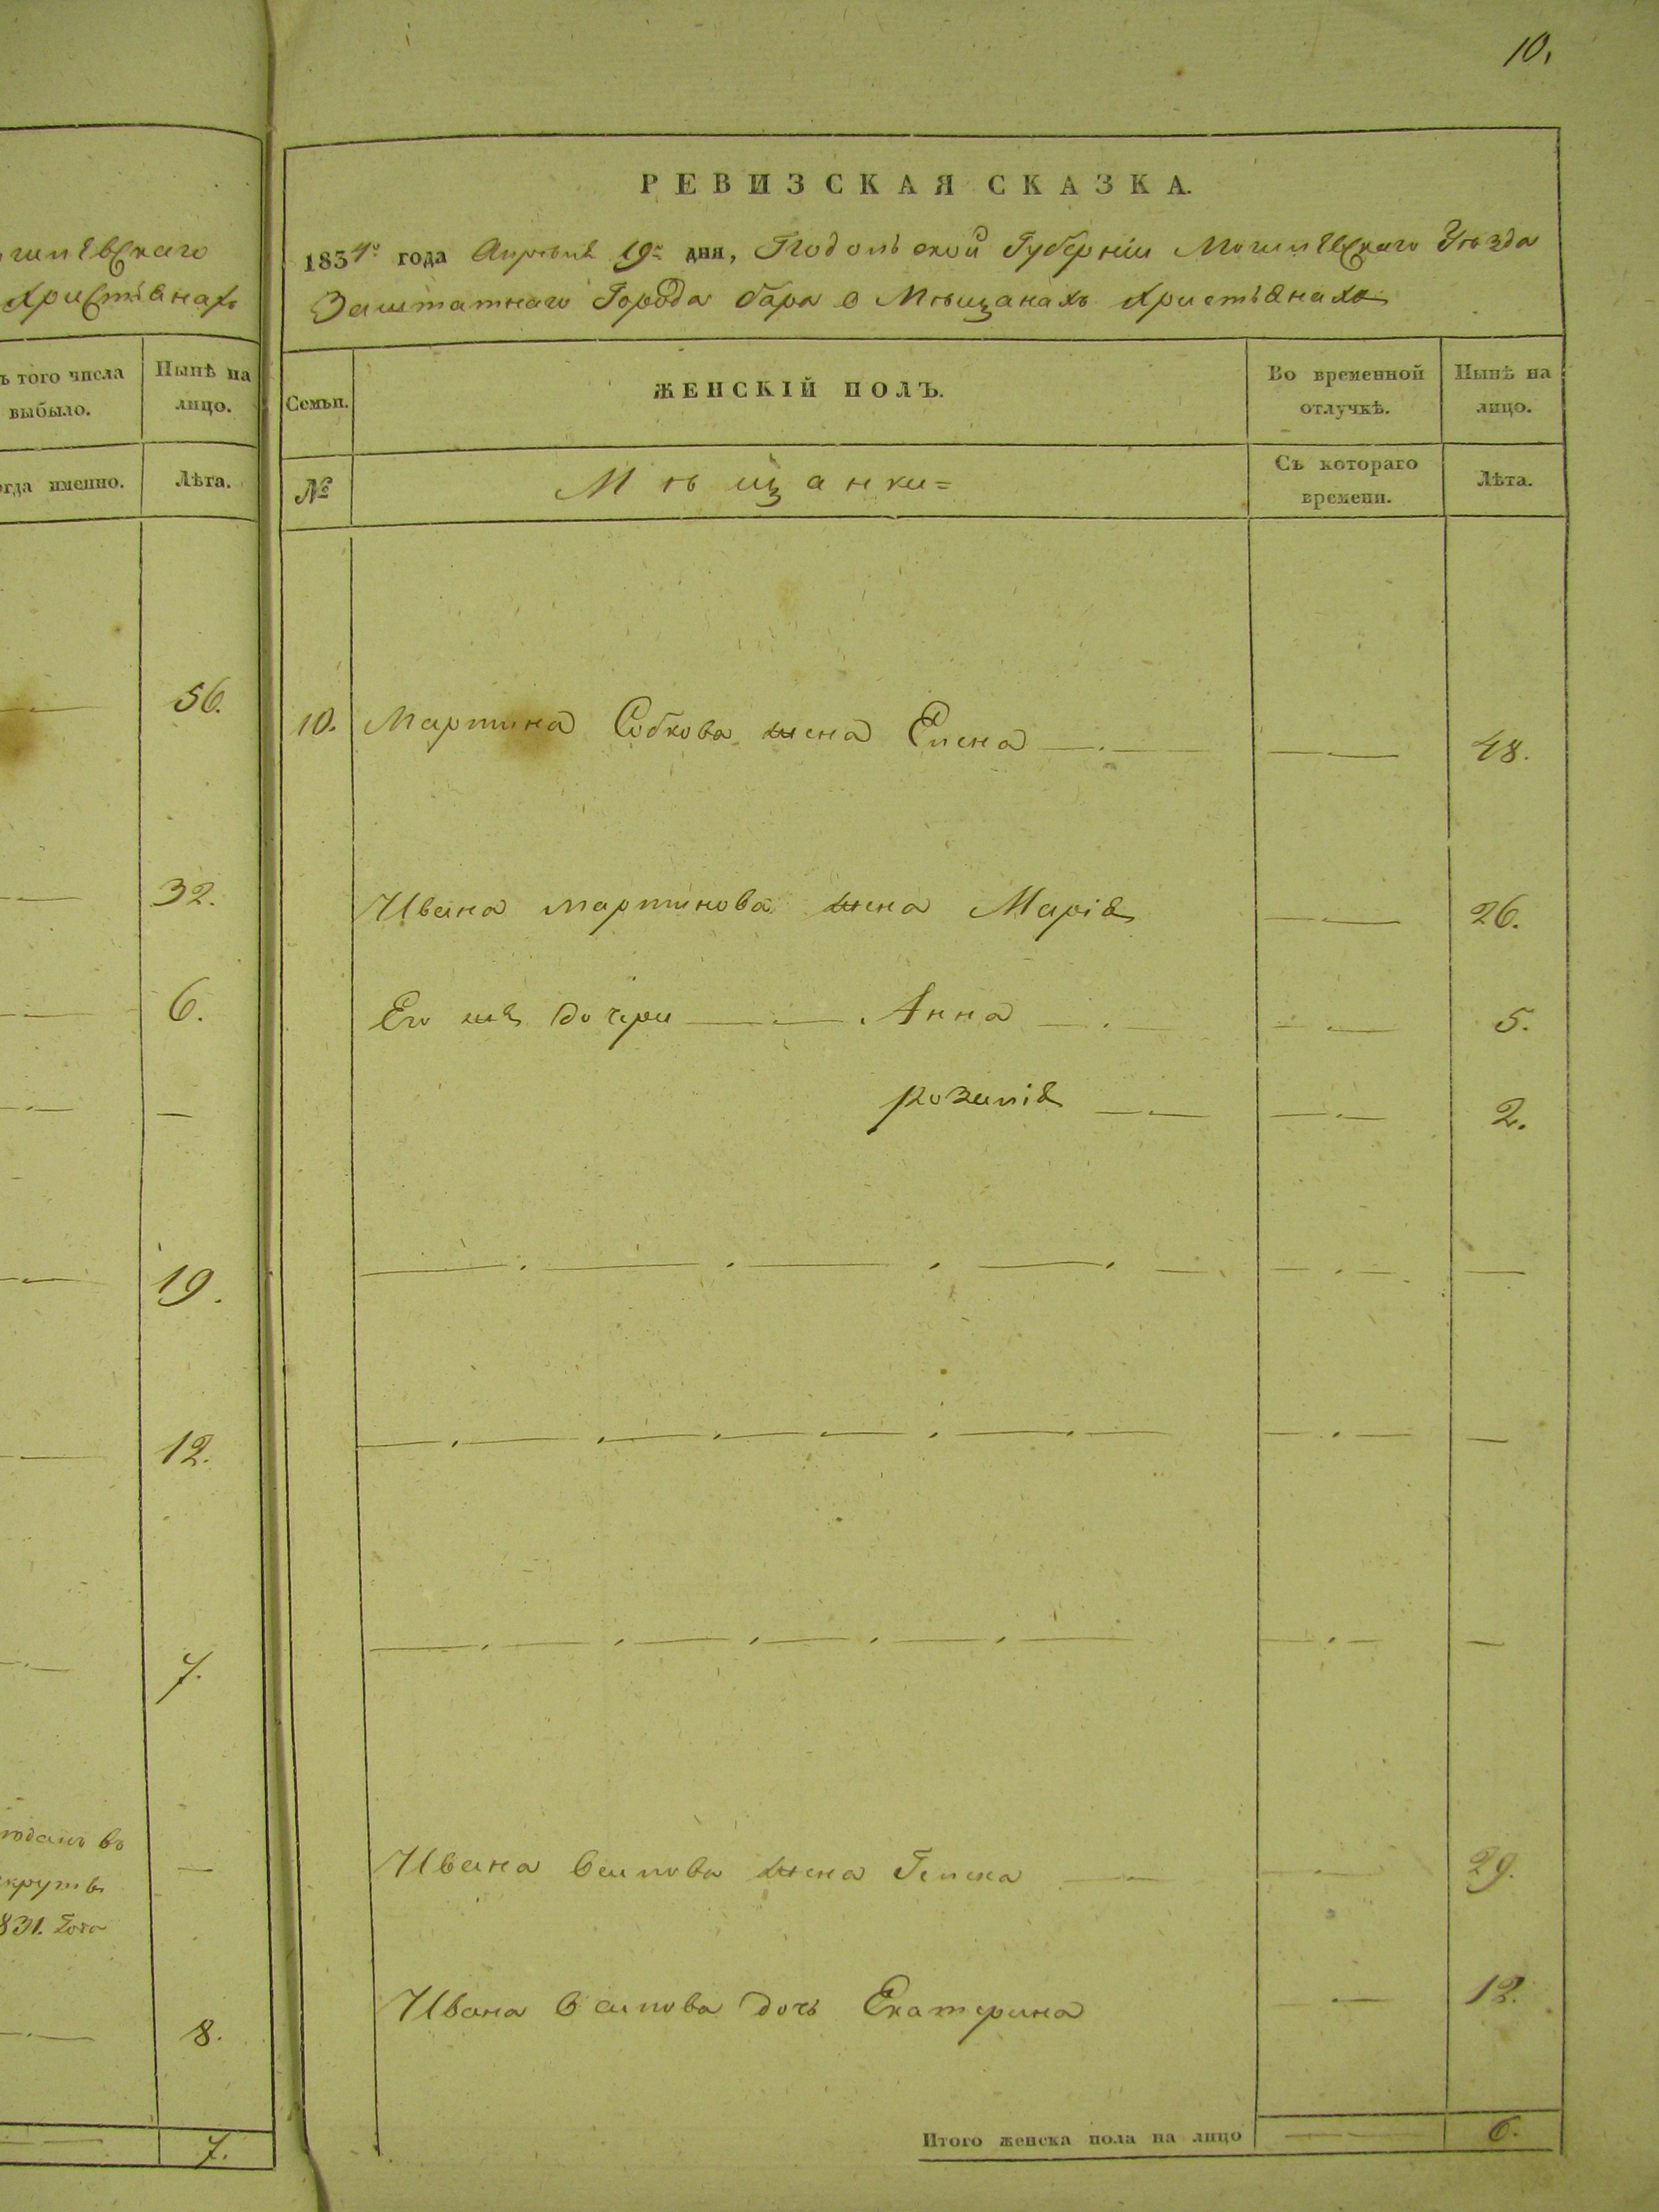 10.
гилевскаго
Христіанахъ
ъ того числа
выбыло.
Нынѣ на
лицо.
огда именно.
Лѣта.
56.
32.
6.
—
19.
12.
7.
въ
831. Года
—
8.
7.
РЕВИЗСКАЯ СКАЗКА.
1834го года Апрѣля 19го дня, Подольской Губерніи Могилевскаго Уѣзда
Заштатнаго Города бара о Мѣщанахъ христіянахъ
Семьи.
ЖЕНСКІЙ ПОЛЪ.
Во временной
отлучкѣ.
Нынѣ на
лицо.
№
Мѣщанки=
Съ котораго
времени.
Лѣта.
10. Мартина Собкова жена Елена — — 48.
Ивана мартинова жена Марія — 26.
Его же дочери — Анна — — 5.
розалія — — 2.
Ивана жена — — 29.
Ивана дочь Екатерина — 12.
Итого женска пола на лицо — 6.